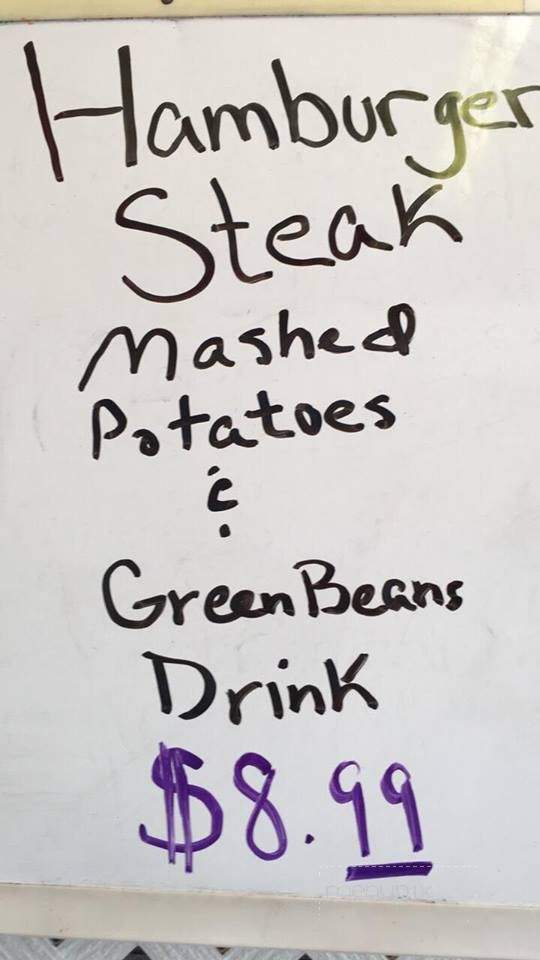 Hamburger
Steak
Mashed
Potatoes
&
Green Beans
Drink
$8.99